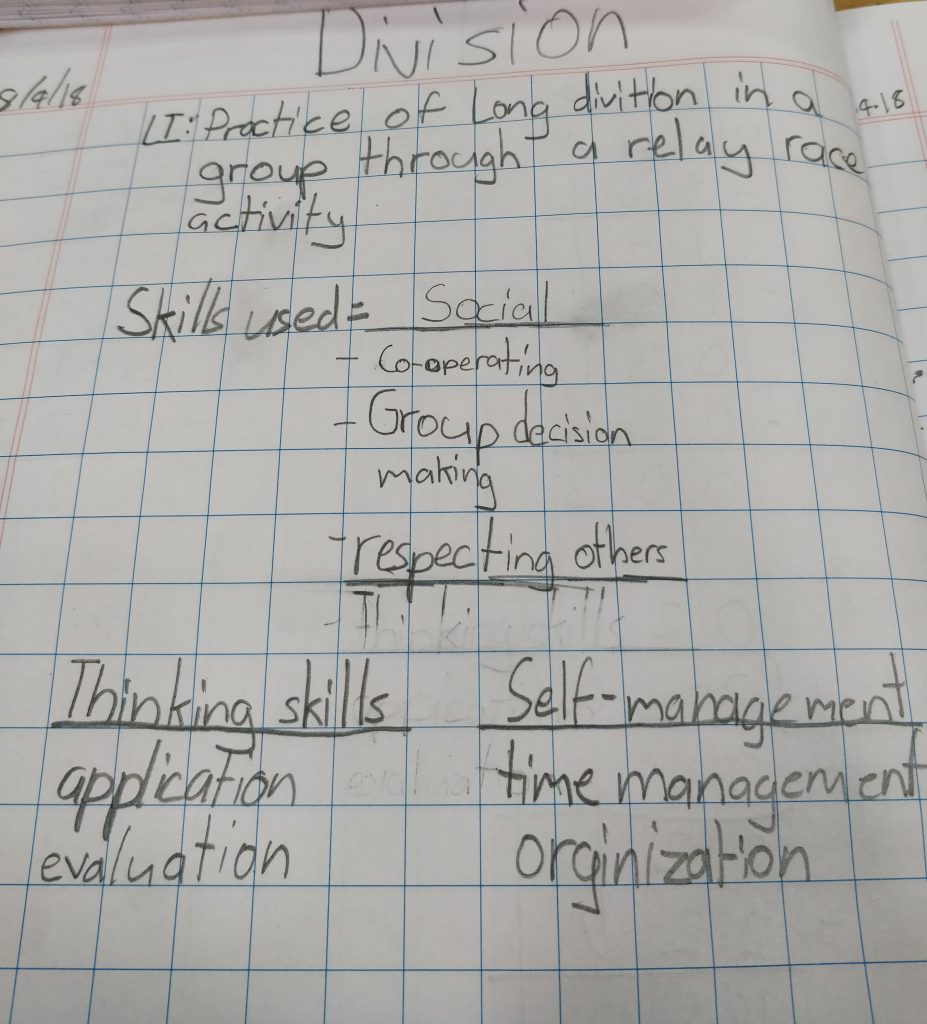 Division
8/4/18
LI: Practice of Long divition in a
group through a relay race
activity
4.18
Skills used= Social
- Co-operating
- Group decision
making
- respecting others
- Thinking skills
Thinking skills
application
evaluation
Self-management
time management
orginization